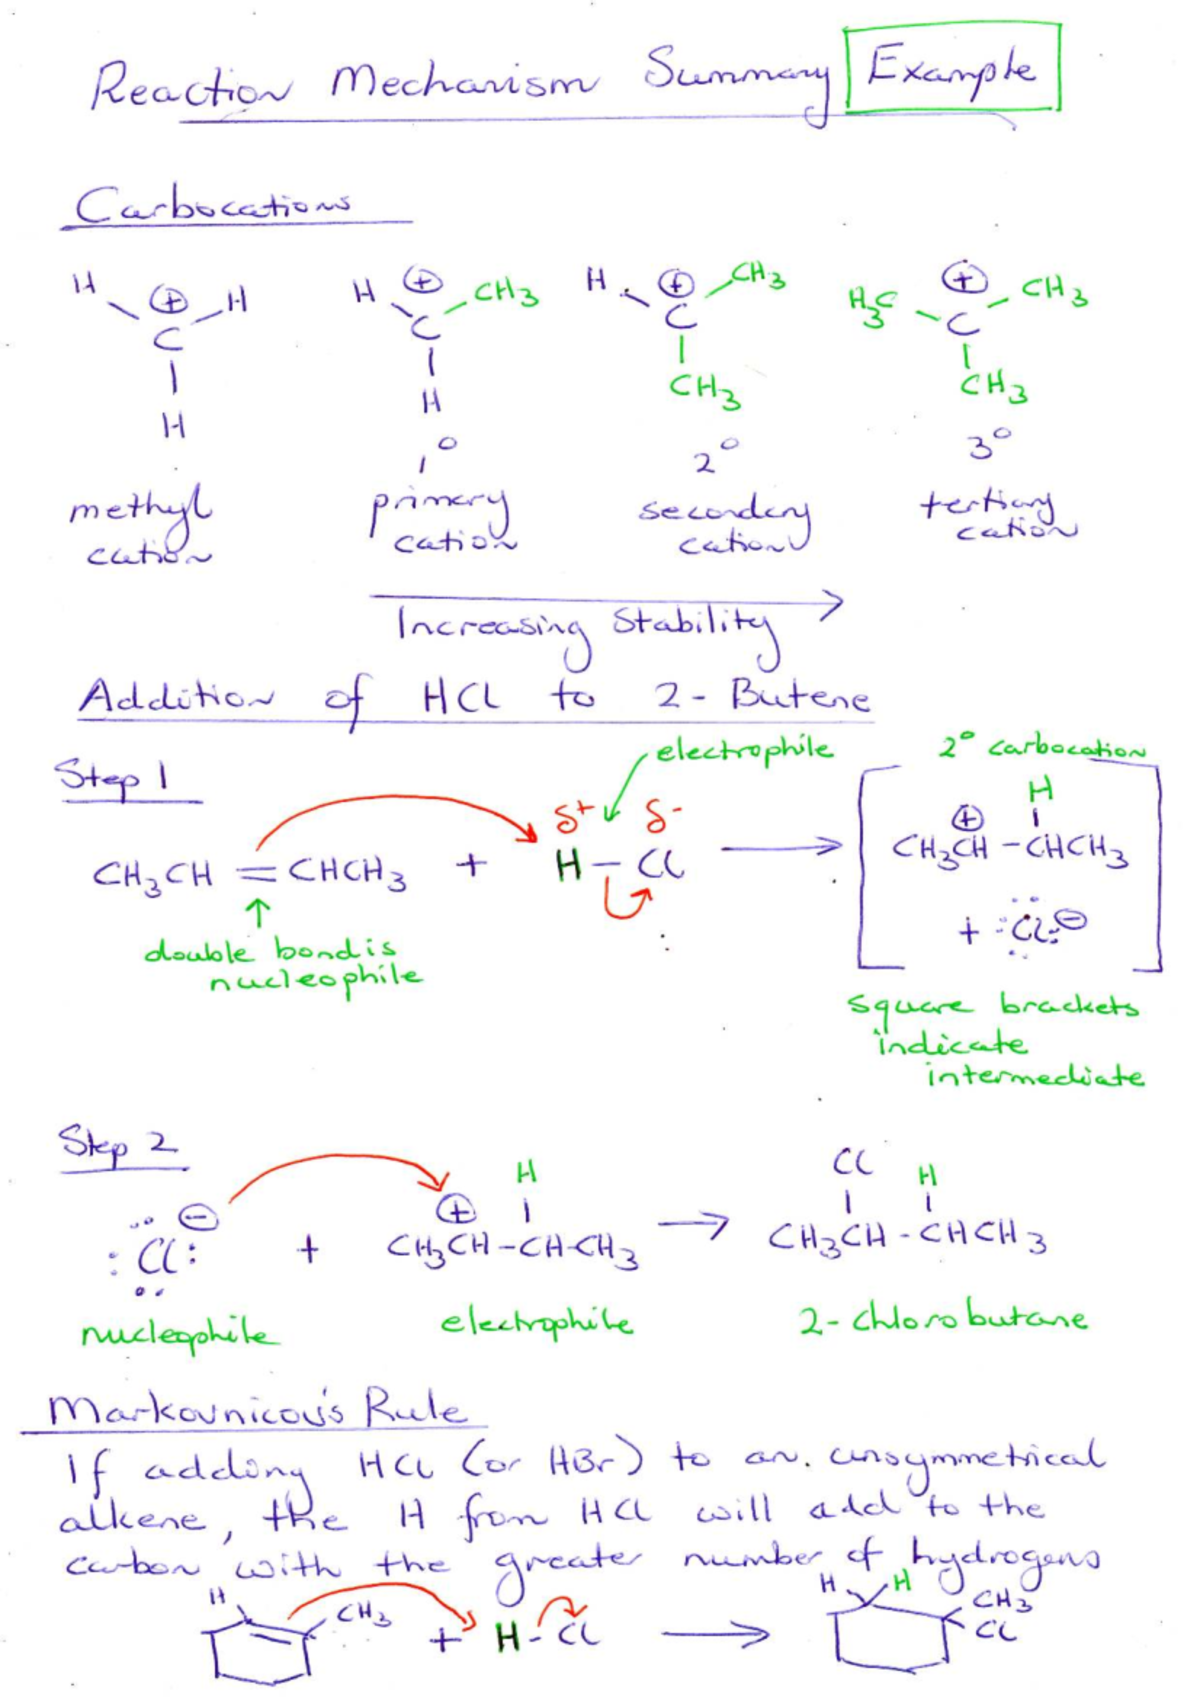 Reaction Mechanism Summary Example
Carbocations
H ⊕ H H ⊕ CH3 H ⊕ CH3 H3C ⊕ CH3
C C C C
H H CH3 CH3
1° 2° 3°
methyl primary secondary tertiary
cation cation cation cation
Increasing Stability
Addition of HCl to 2-Butene
electrophile 2° carbocation
Step 1
δ+ δ- ⊕ H
CH3CH=CHCH3 + H-Cl → CH3CH-CHCH3
+ :Cl:⊖
double bond is
nucleophile
square brackets
indicate
intermediate
Step 2
⊖ ⊕ H Cl H
:Cl: + CH3CH-CH-CH3 → CH3CH-CHCH3
nucleophile electrophile 2-chlorobutane
Markovnicov's Rule
If adding HCl (or HBr) to an unsymmetrical
alkene, the H from HCl will add to the
carbon with the greater number of hydrogens
H CH3 + H-Cl → H H CH3
Cl